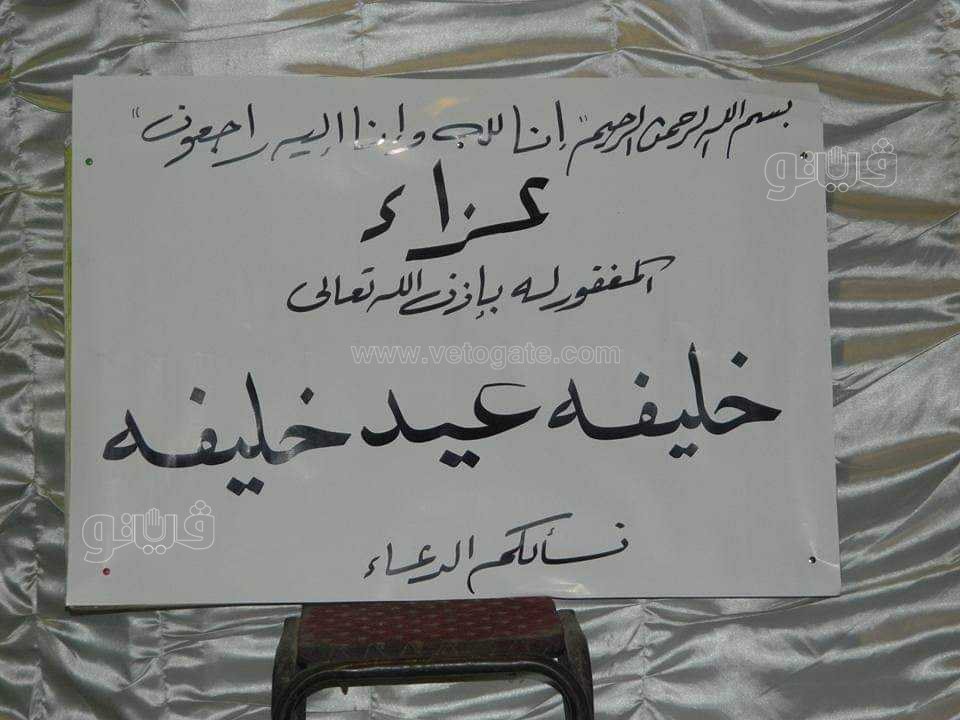 بسم الله الرحمن الرحيم "إنا لله وإنا إليه راجعون"
فيتو
عزاء
المغفور له بإذن الله تعالى
www.vetogate.com
خليفه عيد خليفه
فيتو
نسألكم الدعاء